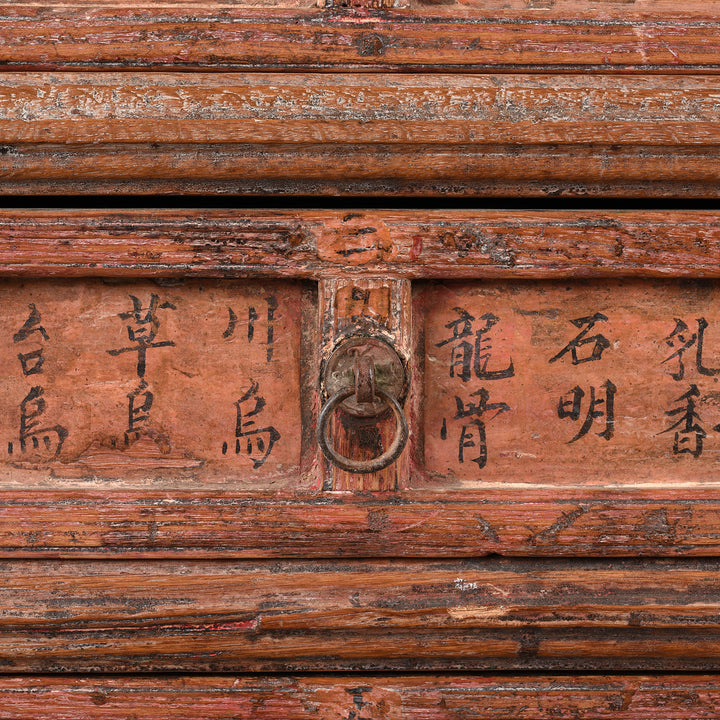 乳香
石明
龍骨
川烏
草烏
台烏